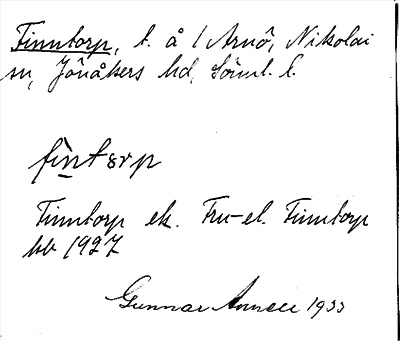 Finntorp, t. å / Arnö, Nikolai
sn, Jönåkers hd, Sörml. l.
fintorp
Finntorp ek. Fru-el. Finntorp
kb 1927
Gunnar 1933